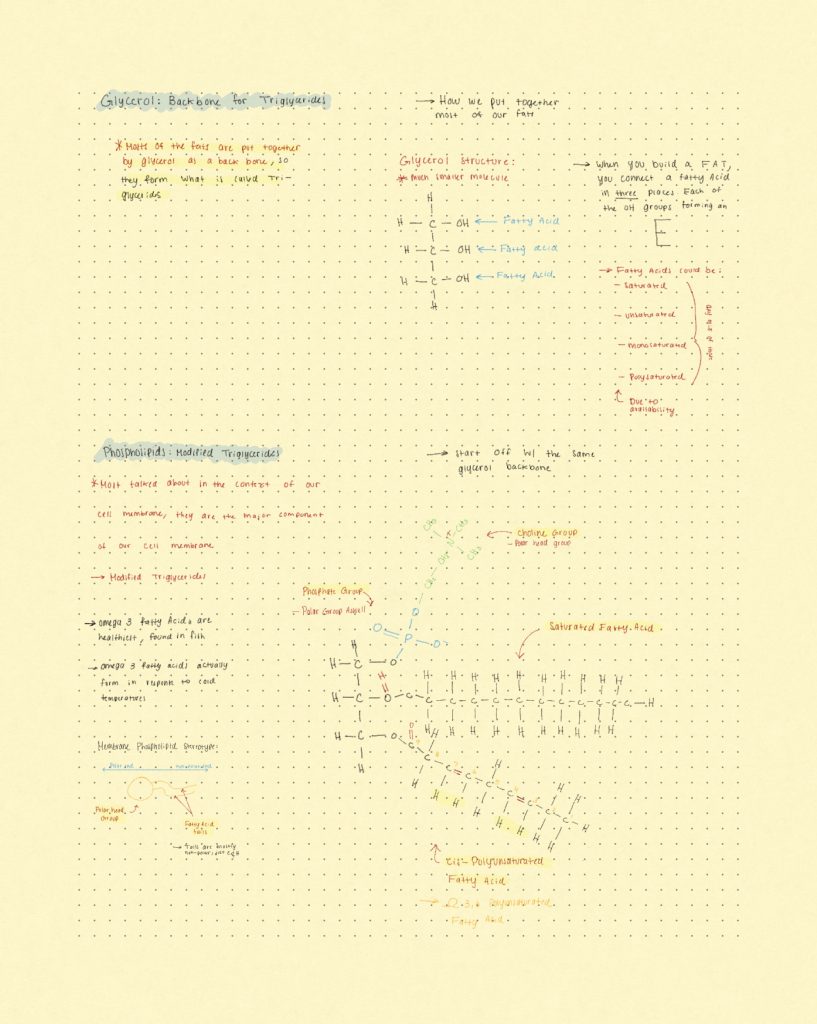 Glycerol: Backbone for Triglycerides
→ How we put together
most of our fats
* Mosts of the fats are put together
by glycerol as a back bone, so
they form what is called Tri-
glycerides
Glycerol structure:
* Much smaller molecule
H
H - C - OH ← Fatty Acid
H - C - OH ← Fatty acid
H - C - OH ← Fatty Acid
H
→ When you build a FAT,
you connect a fatty Acid
in three places. Each of
the OH groups forming an
E
→ Fatty Acids could be:
- Saturated
- unsaturated
- monosaturated
- Polysaturated
Due to
availability
Phospholipids: Modified Triglycerides
→ Start off w/ the same
glycerol backbone
* Most talked about in the context of our
cell membrane, they are the major component
of our cell membrane
→ Modified Triglycerides
→ omega 3 fatty Acids are
healthiest, found in fish
→ omega 3 fatty acids actually
form in response to cold
temperatures
Membrane Phospholipid
Polar head
Group
Fatty Acid
tails
→ Tails are mostly
CH3
CH3
N
CH3
CH2
CH2
← Choline Group
- Polar head group
Phosphate Group
- Polar Group
O
O = P - O-
H
H - C - O
H - C - O - C - C - C - C - C - C - C - C - C - C - C - C - H
H - C - O
H
Saturated Fatty Acid
cis-Polyunsaturated
Fatty Acid
→ Ω 3,6 Polyunsaturated
Fatty Acid